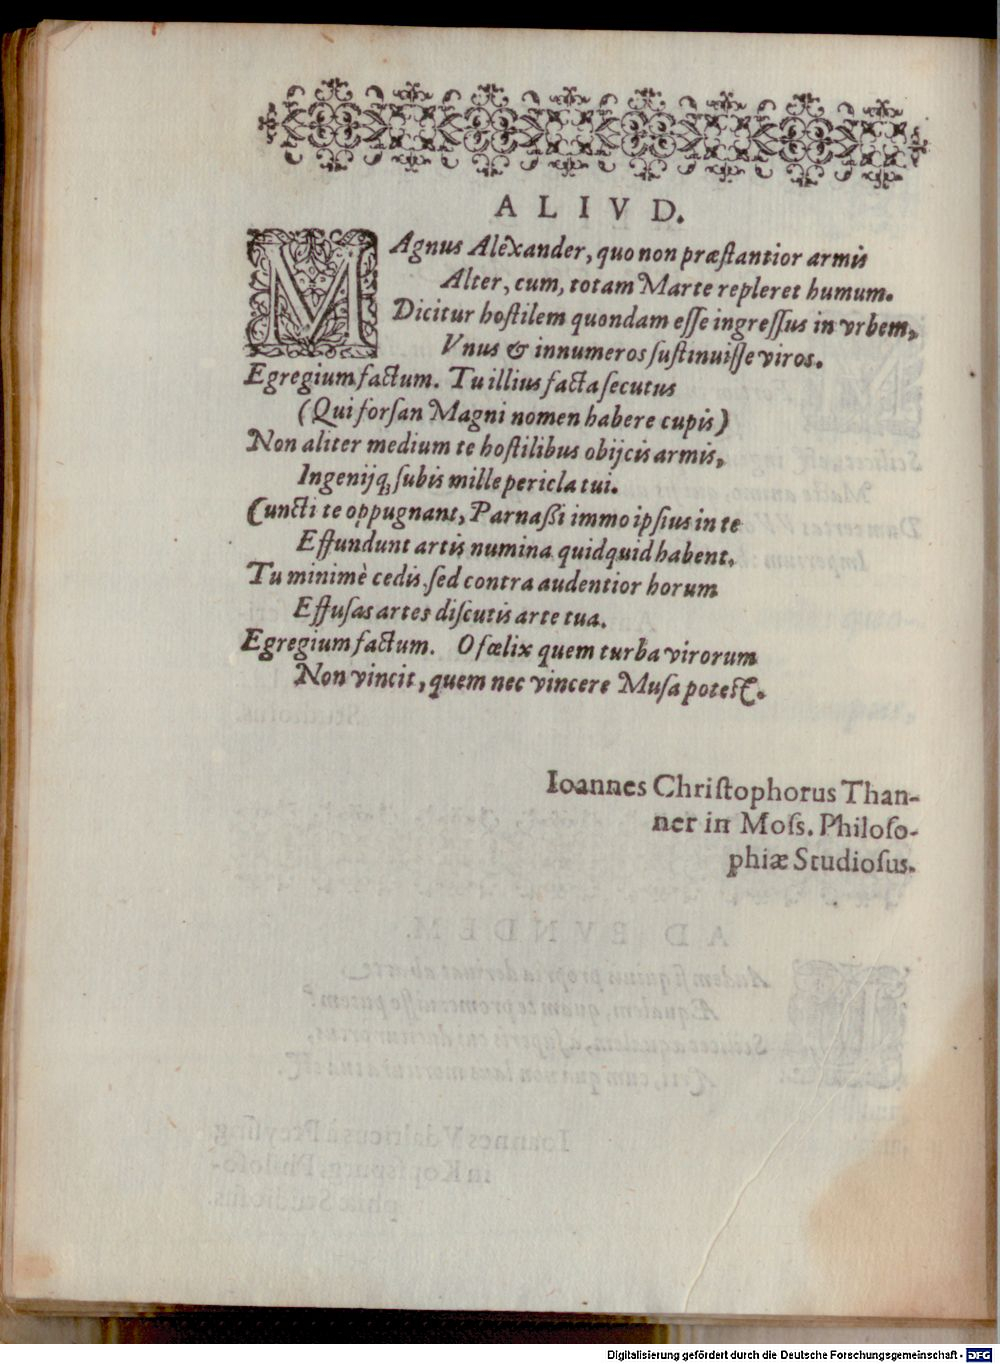 ALIVD.
MAgnus Alexander, quo non præſtantior armis
Alter, cum, totam Marte repleret humum.
Dicitur hoſtilem quondam eſſe ingreſſus in vrbem,
Vnus & innumeros ſuſtinuiſſe viros.
Egregium factum. Tu illius facta ſecutus
(Qui forſan Magni nomen habere cupis)
Non aliter medium te hoſtilibus obijcis armis,
Ingenijq́; ſubis mille pericla tui.
Cuncti te oppugnant, Parnaßi immo ipſius in te
Effundunt artis numina quidquid habent.
Tu minimè cedis, ſed contra audentior horum
Effuſas artes diſcutis arte tua.
Egregium factum. O fœlix quem turba virorum
Non vincit, quem nec vincere Muſa poteſt.
Ioannes Chriſtophorus Than-
ner in Moſs. Philoſo-
phiæ Studioſus.
Digitalisierung gefördert durch die Deutsche Forschungsgemeinschaft - DFG